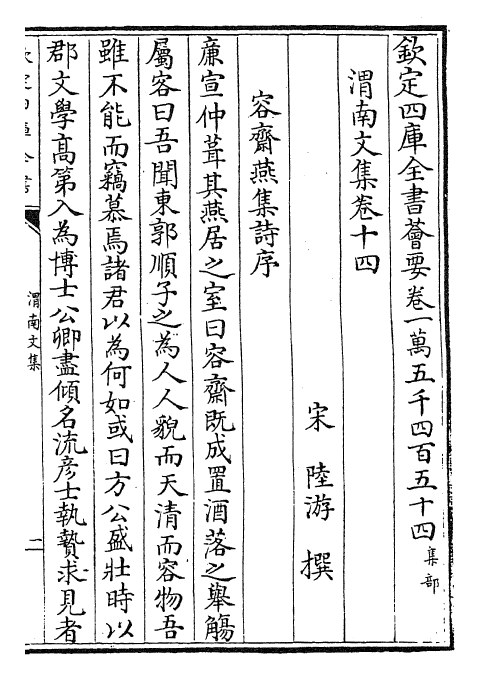 欽定四庫全書薈要卷一萬五千四百五十四 集部
渭南文集卷十四
宋 陸游 撰
容齋燕集詩序
廉宣仲葺其燕居之室曰容齋既成置酒落之舉觴
屬客曰吾聞東郭順子之為人人貌而天清而容物吾
雖不能而竊慕焉諸君以為何如或曰方公盛壯時以
郡文學髙第入為博士公卿盡傾名流彦士執贄求見者
渭南文集
二